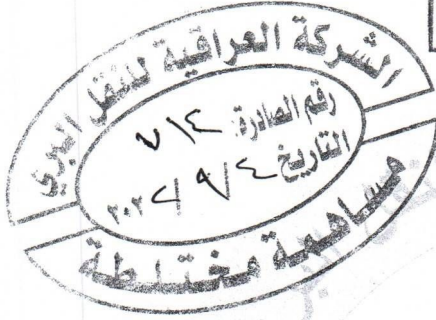 الشركة العراقية للنقل البري
رقم الصادرة: ٧١٤
التاريخ ٤ / ٩ / ٢٠٢٤
مساهمة مختلطة